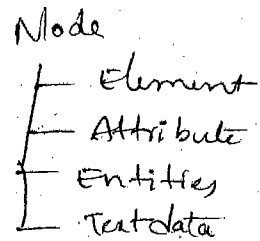 Node
Element
Attribute
Entities
Textdata